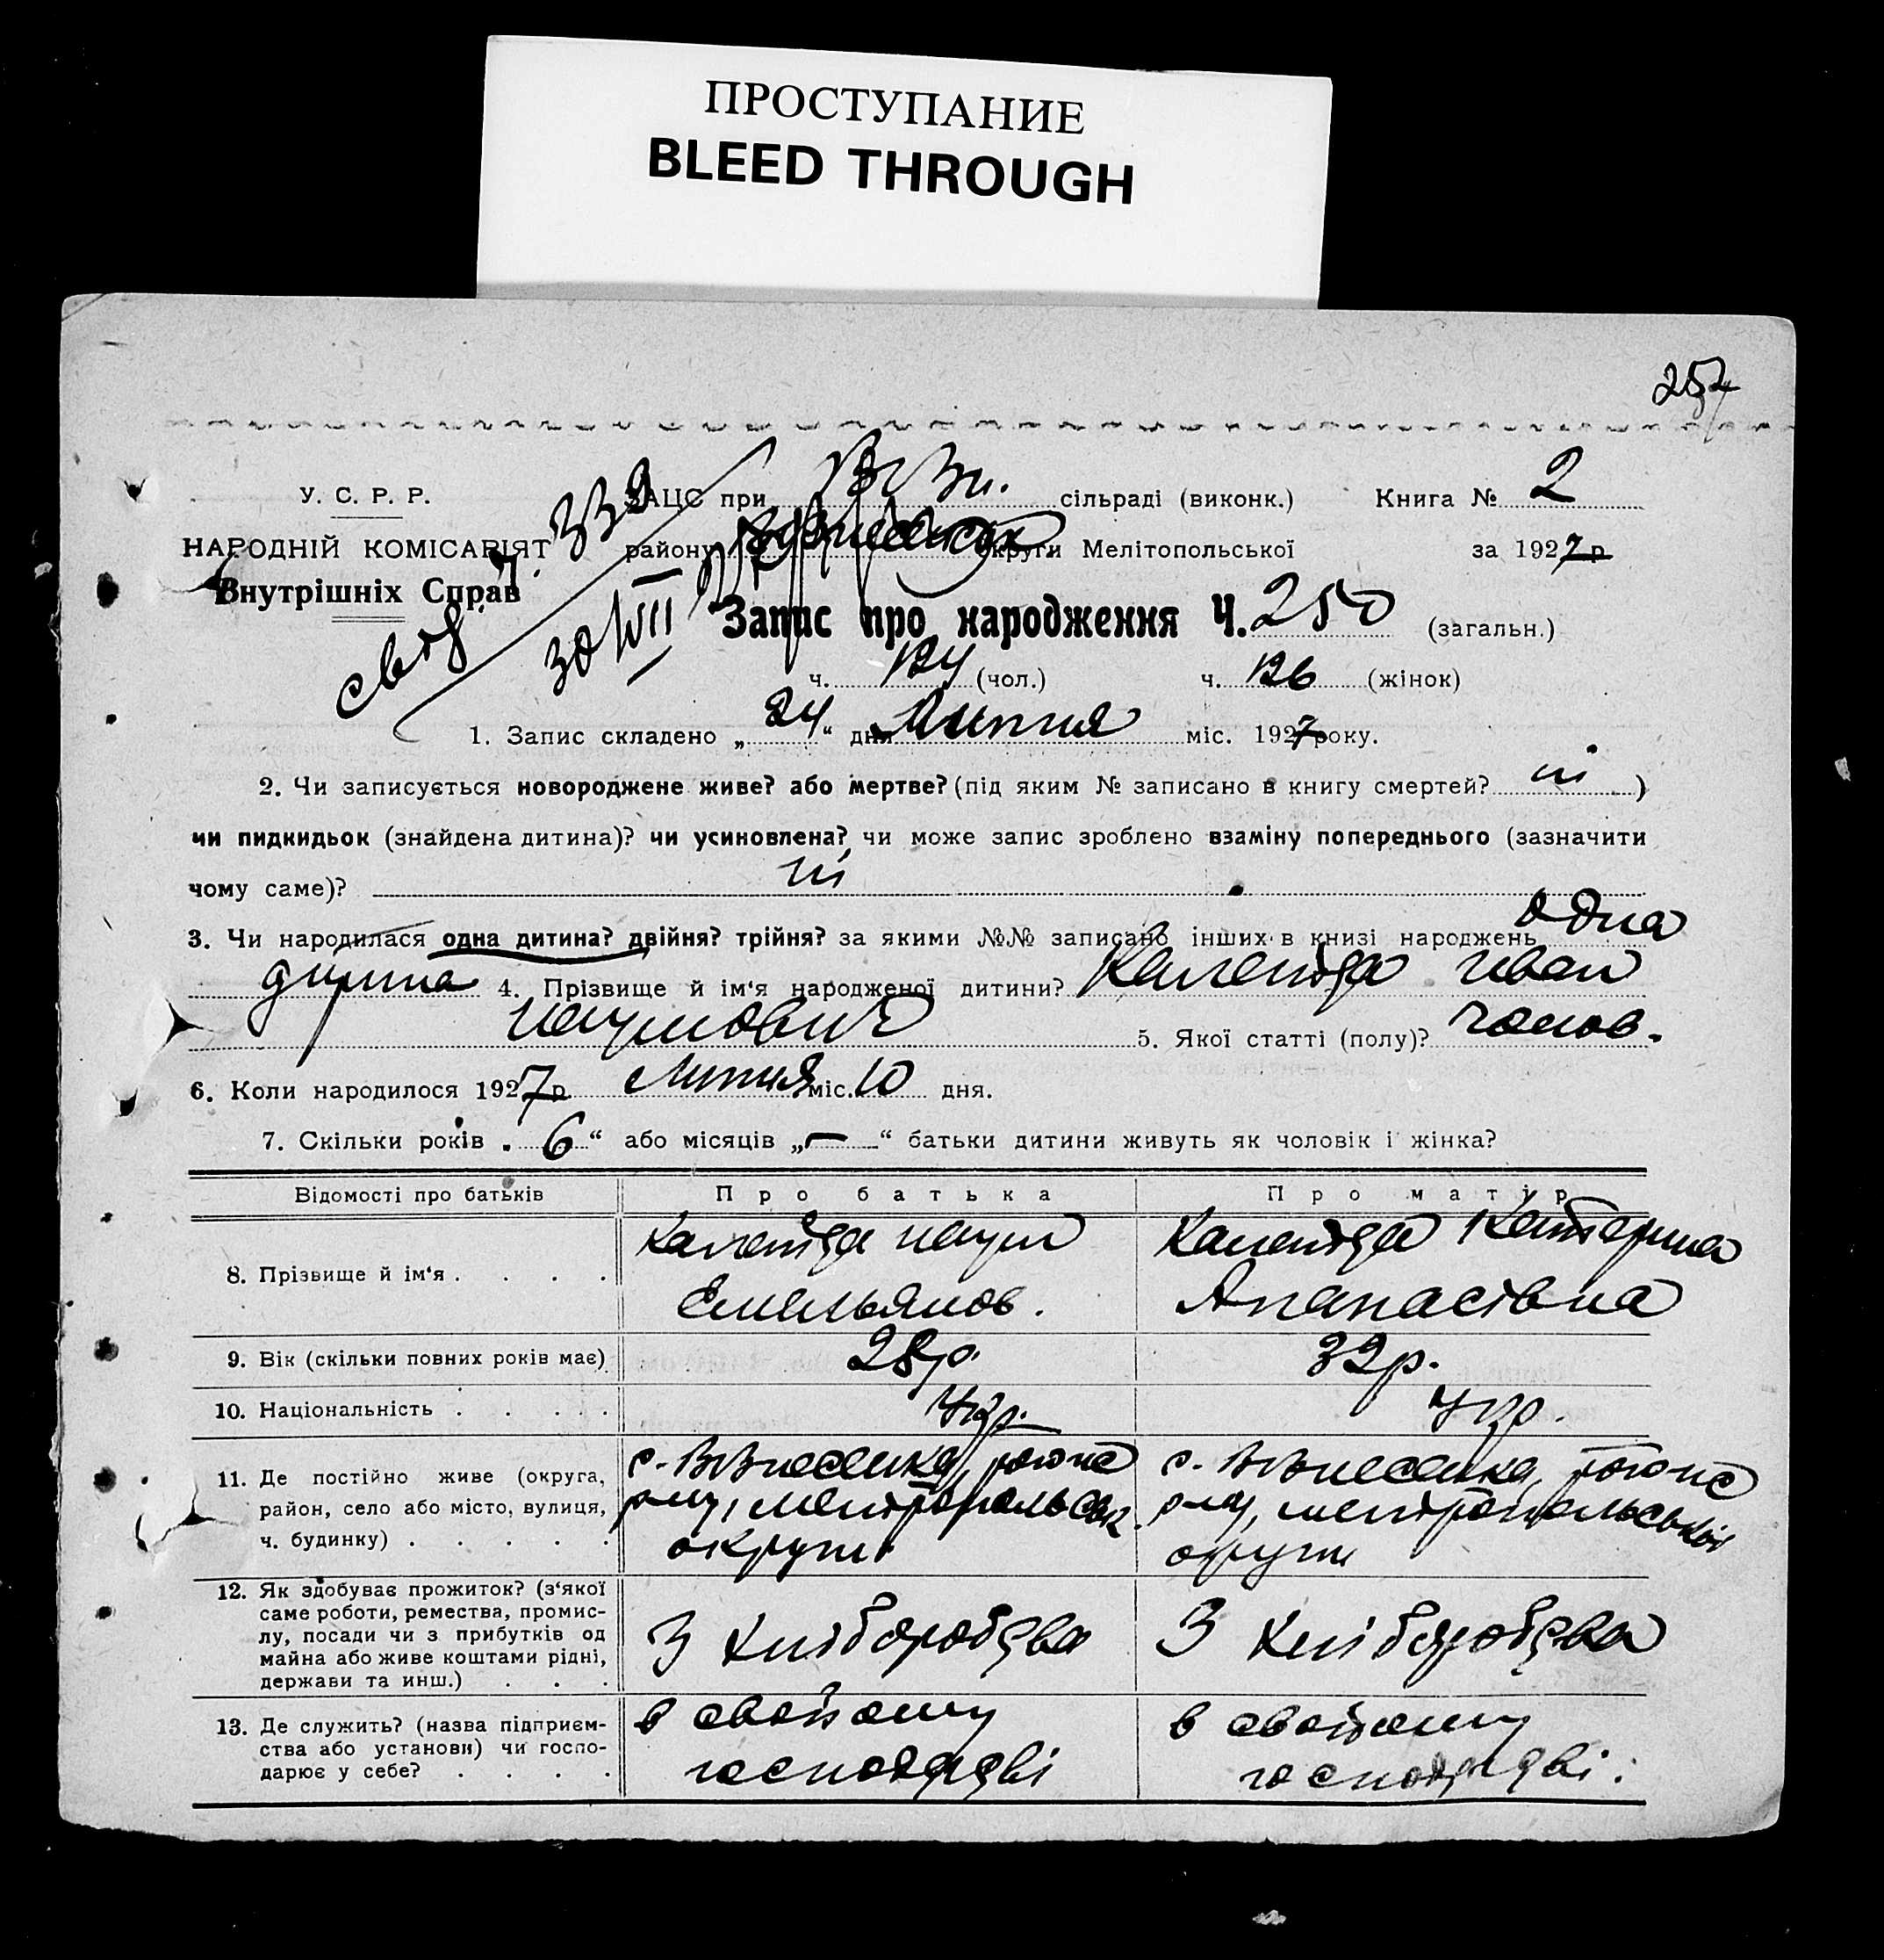 ПРОСТУПАНИЕ
BLEED THROUGH
257
У. С. Р. Р.
НАРОДНІЙ КОМІСАРІЯТ
Внутрішніх Справ
ЗАЦС при сільраді (виконк.) Книга № 2
району округи Мелітопольської за 1927 р.
Запис про народження Ч. 250 (загальн.)
ч. 124 (чол.) ч. 126 (жінок)
1. Запис складено „24“ дня Липня міс. 1927 року.
2. Чи записується новороджене живе? або мертве? (під яким № записано в книгу смертей? ні )
чи пидкидьок (знайдена дитина)? чи усиновлена? чи може запис зроблено взаміну попереднього (зазначити
чому саме)? ні
3. Чи народилася одна дитина? двійня? трійня? за якими №№ записано інших в книзі народжень одна
дитина 4. Прізвище й ім‘я народженої дитини? Календа Иван
Наумович 5. Якої статті (полу)? чолов.
6. Коли народилося 1927 р. Липня міс. 10 дня.
7. Скільки років „6“ або місяців „—“ батьки дитини живуть як чоловік і жінка?
Відомості про батьків Про батька Про матір
8. Прізвище й ім‘я . . . . Календа Наум Емельянов. Календа Катерина Апанасівна
9. Вік (скільки повних років має) 28 р. 32 р.
10. Національність . . . . . Укр. Укр.
11. Де постійно живе (округа,
район, село або місто, вулиця,
ч. будинку) . . . . .
с. Вознесенка, району, Мелітопольськ. округи
с. Вознесенка, району, Мелітопольської округи
12. Як здобуває прожиток? (з‘якої
саме роботи, ремества, промис-
лу, посади чи з прибутків од
майна або живе коштами рідні,
держави та инш.) . . .
З хліборобства З хліборобства
13. Де служить? (назва підприєм-
ства або установи) чи госпо-
дарює у себе? . . . .
в свойому господарстві
в свойому господарстві.